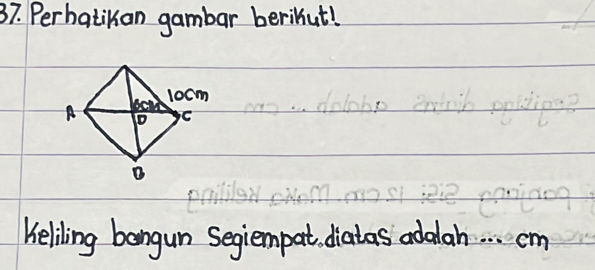 37. Perhatikan gambar berikut!
10cm
A 6cm C
D
B
Keliling bangun segiempat.diatas adalah ... cm